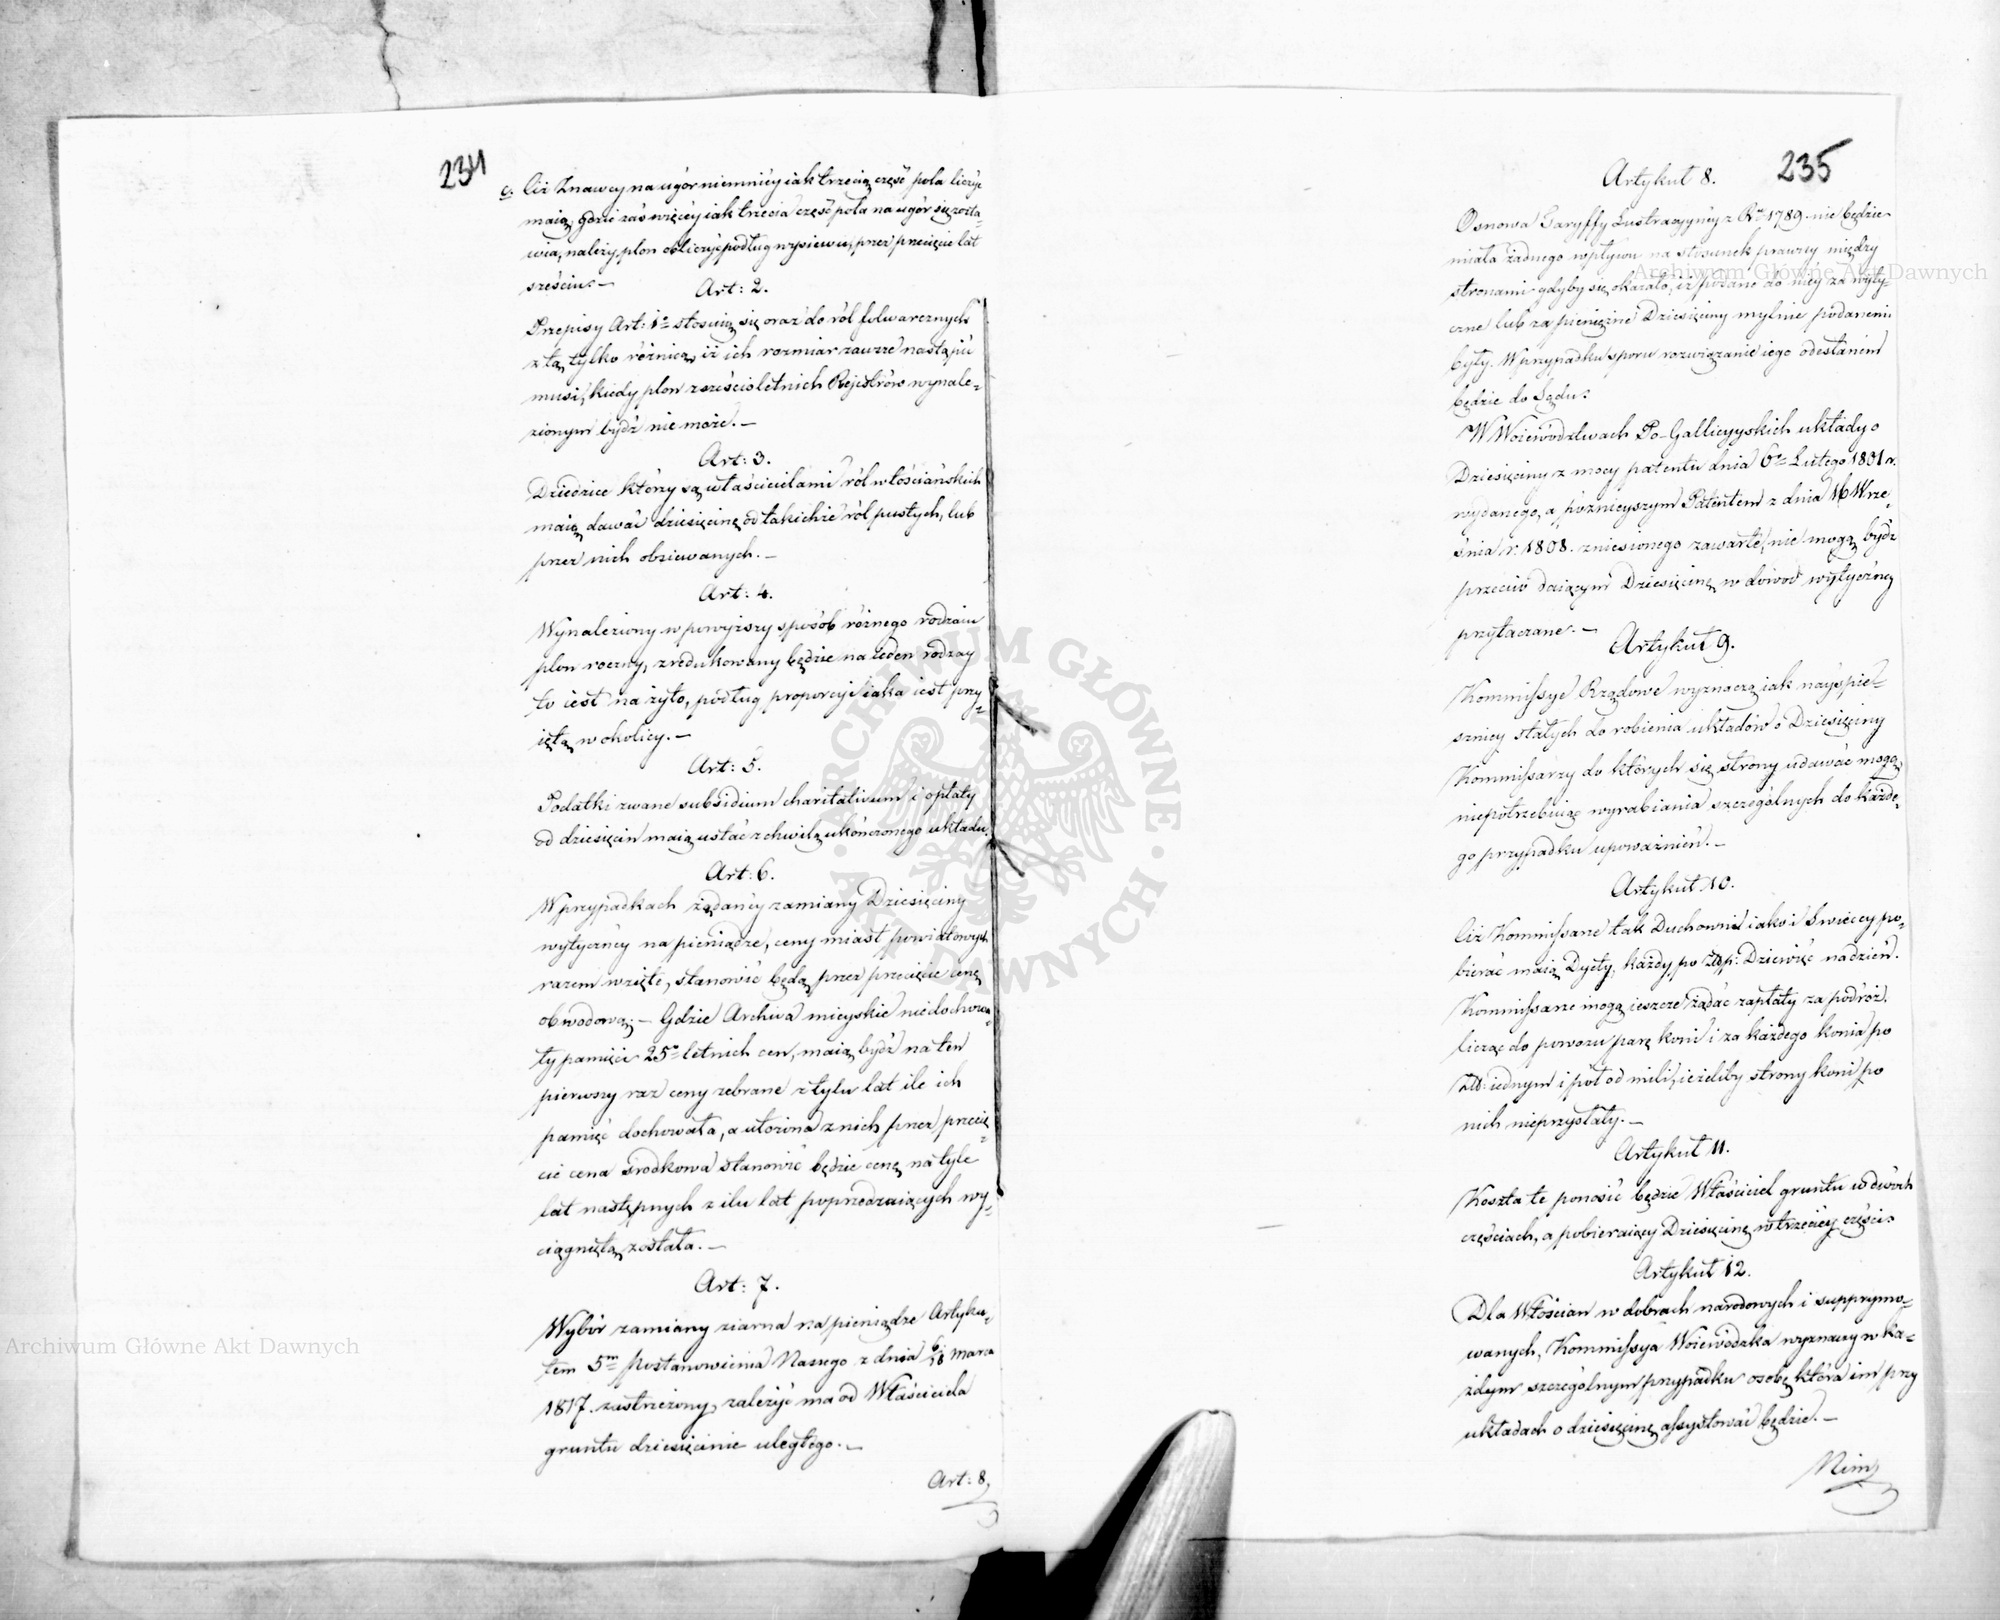 234
c. Ciż Znawcy na ugór niemniéy iak trzecią część pola liczyć
maią, gdzie zaś więcéy iak trzecia część pola na ugór się zosta-
wia, należy plon obliczyć podług wysiewu, przez przecięcie lat
sześciu. –
Art: 2.
Przepisy Art: 1o stosuią się oraz do ról folwarcznych
z tą tylko różnicą, iż ich rozmiar zawsze nastąpić
musi, kiedy plon z sześcioletnich Rejestrów wynale-
zionym bydź nie może. –
Art: 3.
Dziedzice którzy są właścicielami ról włościańskich
maią dawać dziesięcinę od takichże ról pustych, lub
przez nich obsiewanych. –
Art: 4.
Wynaleziony w powyższy sposób różnego rodzaiu
plon roczny, zredukowany będzie na ieden rodzay
to iest na żyto, podług proporcyi iaka iest przy-
iętą w okolicy. –
Art: 5.
Podatki zwane subsidium charitativum i opłaty
od dziesięcin maią ustać z chwilą ukończonego układu.
Art: 6.
W przypadkach żądanéy zamiany Dziesięciny
wytycznéy na pieniądze, ceny miast powiatowych
razem wzięte, stanowić będą przez przecięcie cenę
obwodową; – Gdzie Archiwa mieyskie niedochowa-
ły pamięci 25o letnich cen, maią bydź na ten
pierwszy raz ceny zebrane z tylu lat ile ich
pamięć dochowała, a utworzona z nich przez przecię-
cie cena środkowa stanowić będzie cenę na tyle
lat następnych z ilu lat poprzedzaiących wy-
ciągniętą została. –
Art: 7.
Wybór zamiany ziarna na pieniądze Artyku-
łem 5m Postanowienia Naszego z dnia 6/18 Marca
1817. zastrzeżony, zależyć ma od Właściciela
gruntu dziesięcinie uległego. –
Art: 8.
235
Artykuł 8.
Osnowa Taryffy Lustracyynéy z Ru 1789. nie będzie
miała żadnego wpływu na stosunek prawny między
stronami gdyby się okazało, iż podane do niéy za wyty-
czne lub za pieniężne Dziesięciny mylnie podanemi
były. W przypadku sporu rozwiązanie iego odesłanem
będzie do Sądu.
W Woiewództwach Po-Gallicyyskich układy o
Dziesięciny z mocy patentu dnia 6o Lutego 1801 r.
wydanego, a późnieyszym Patentem z dnia 16 Wrze-
śnia r. 1808. zniesionego zawarte, nie mogą bydź
przeciw daiącym Dziesięcinę w dowod wytycznéy
przytaczane. –
Artykuł 9.
Kommissye Rządowe wyznaczą iak nayśpie-
sznéy stałych do robienia układów o Dziesięciny
Kommissarzy do których się strony udawać mogą
niepotrzebuiąc wyrabiania szczególnych do każde-
go przypadku upoważnień. –
Artykuł 10.
Ciż Kommissarze tak Duchowni iako i Świeccy po-
bierać maią Dyety, każdy po Złp: Dziewięć na dzień.
Kommissarze mogą ieszcze żądać zapłaty za podróż.
licząc do powozu parę koni i za każdego konia po
Złt: iednym i pół od mili, ieżeliby strony koni po
nich nieprzysłały. –
Artykuł 11.
Koszta te ponosić będzie Właściciel gruntu w dwóch
częściach, a pobieraiący Dziesięcinę w trzeciéy części.
Artykuł 12.
Dla Włościan w dobrach narodowych i supprymo-
wanych, Kommissya Woiewódzka wyznaczy w ka-
żdym szczególnym przypadku osobę która im przy
układach o dziesięcinę assystować będzie. –
Archiwum Główne Akt Dawnych
Archiwum Główne Akt Dawnych
ARCHIWUM GŁÓWNE AKT DAWNYCH